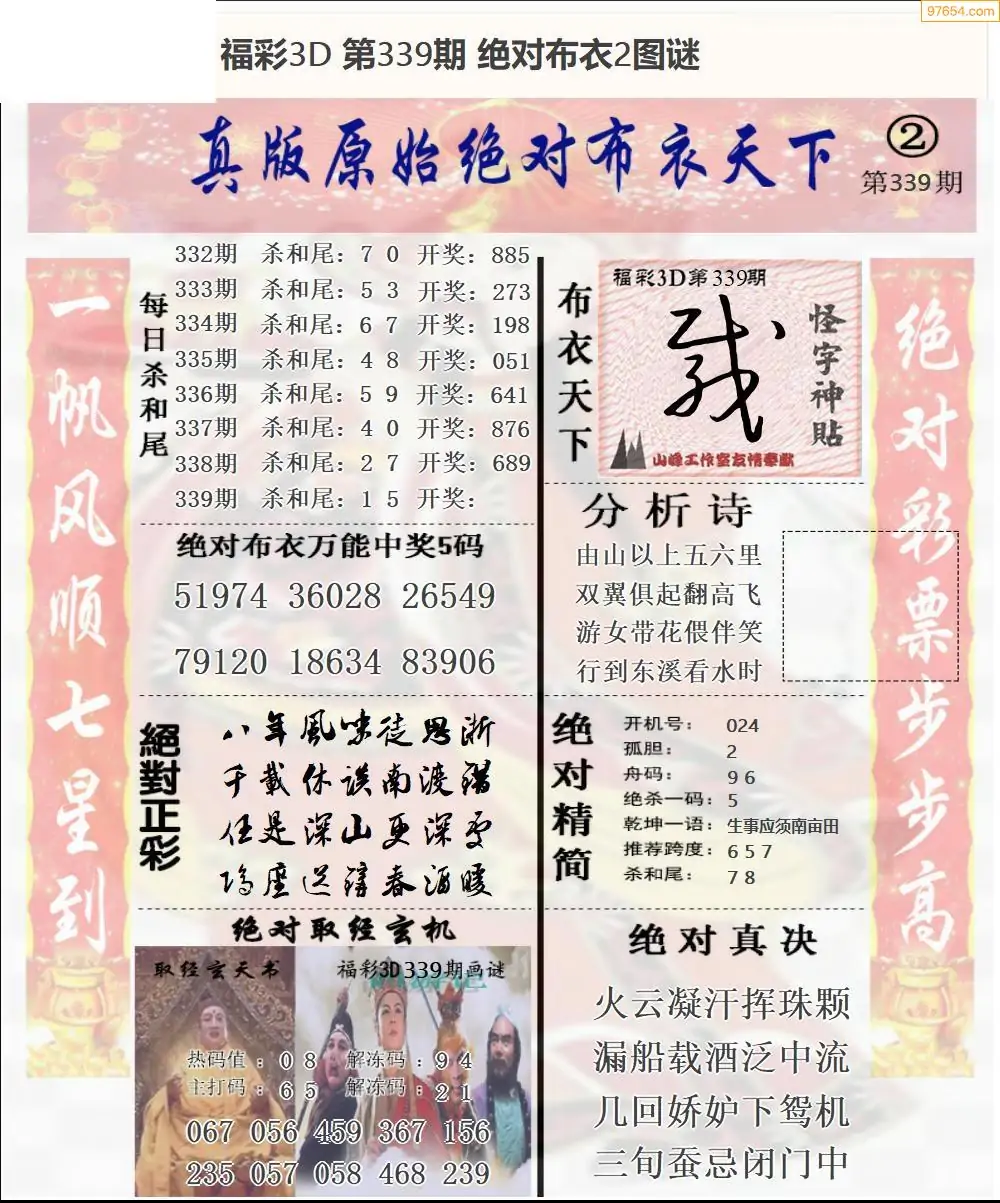 97654.com
福彩3D 第339期 绝对布衣2图谜
真版原始绝对布衣天下
②
第339期
一帆风顺七星到
每日杀和尾
332期 杀和尾：7 0 开奖：885
333期 杀和尾：5 3 开奖：273
334期 杀和尾：6 7 开奖：198
335期 杀和尾：4 8 开奖：051
336期 杀和尾：5 9 开奖：641
337期 杀和尾：4 0 开奖：876
338期 杀和尾：2 7 开奖：689
339期 杀和尾：1 5 开奖：
绝对布衣万能中奖5码
51974 36028 26549
79120 18634 83906
絕對正彩
八年風味徒思浙
千載休誤南渡
任是深山更深
送 春酒暖
绝对取经玄机
取经玄天书
福彩3D339期画谜
热码值：0 8 解冻码：9 4
主打码：6 5 解冻码：2 1
067 056 459 367 156
235 057 058 468 239
布衣天下
福彩3D第339期
怪字神貼
山峰工作室友情奉献
分析诗
由山以上五六里
双翼俱起翻高飞
游女带花偎伴笑
行到东溪看水时
绝对精简
开机号：024
孤胆：2
舟码：9 6
绝杀一码：5
乾坤一语：生事应须南亩田
推荐跨度：6 5 7
杀和尾：7 8
绝对真决
火云凝汗挥珠颗
漏船载酒泛中流
几回娇妒下鸳机
三旬蚕忌闭门中
绝对彩票步步高